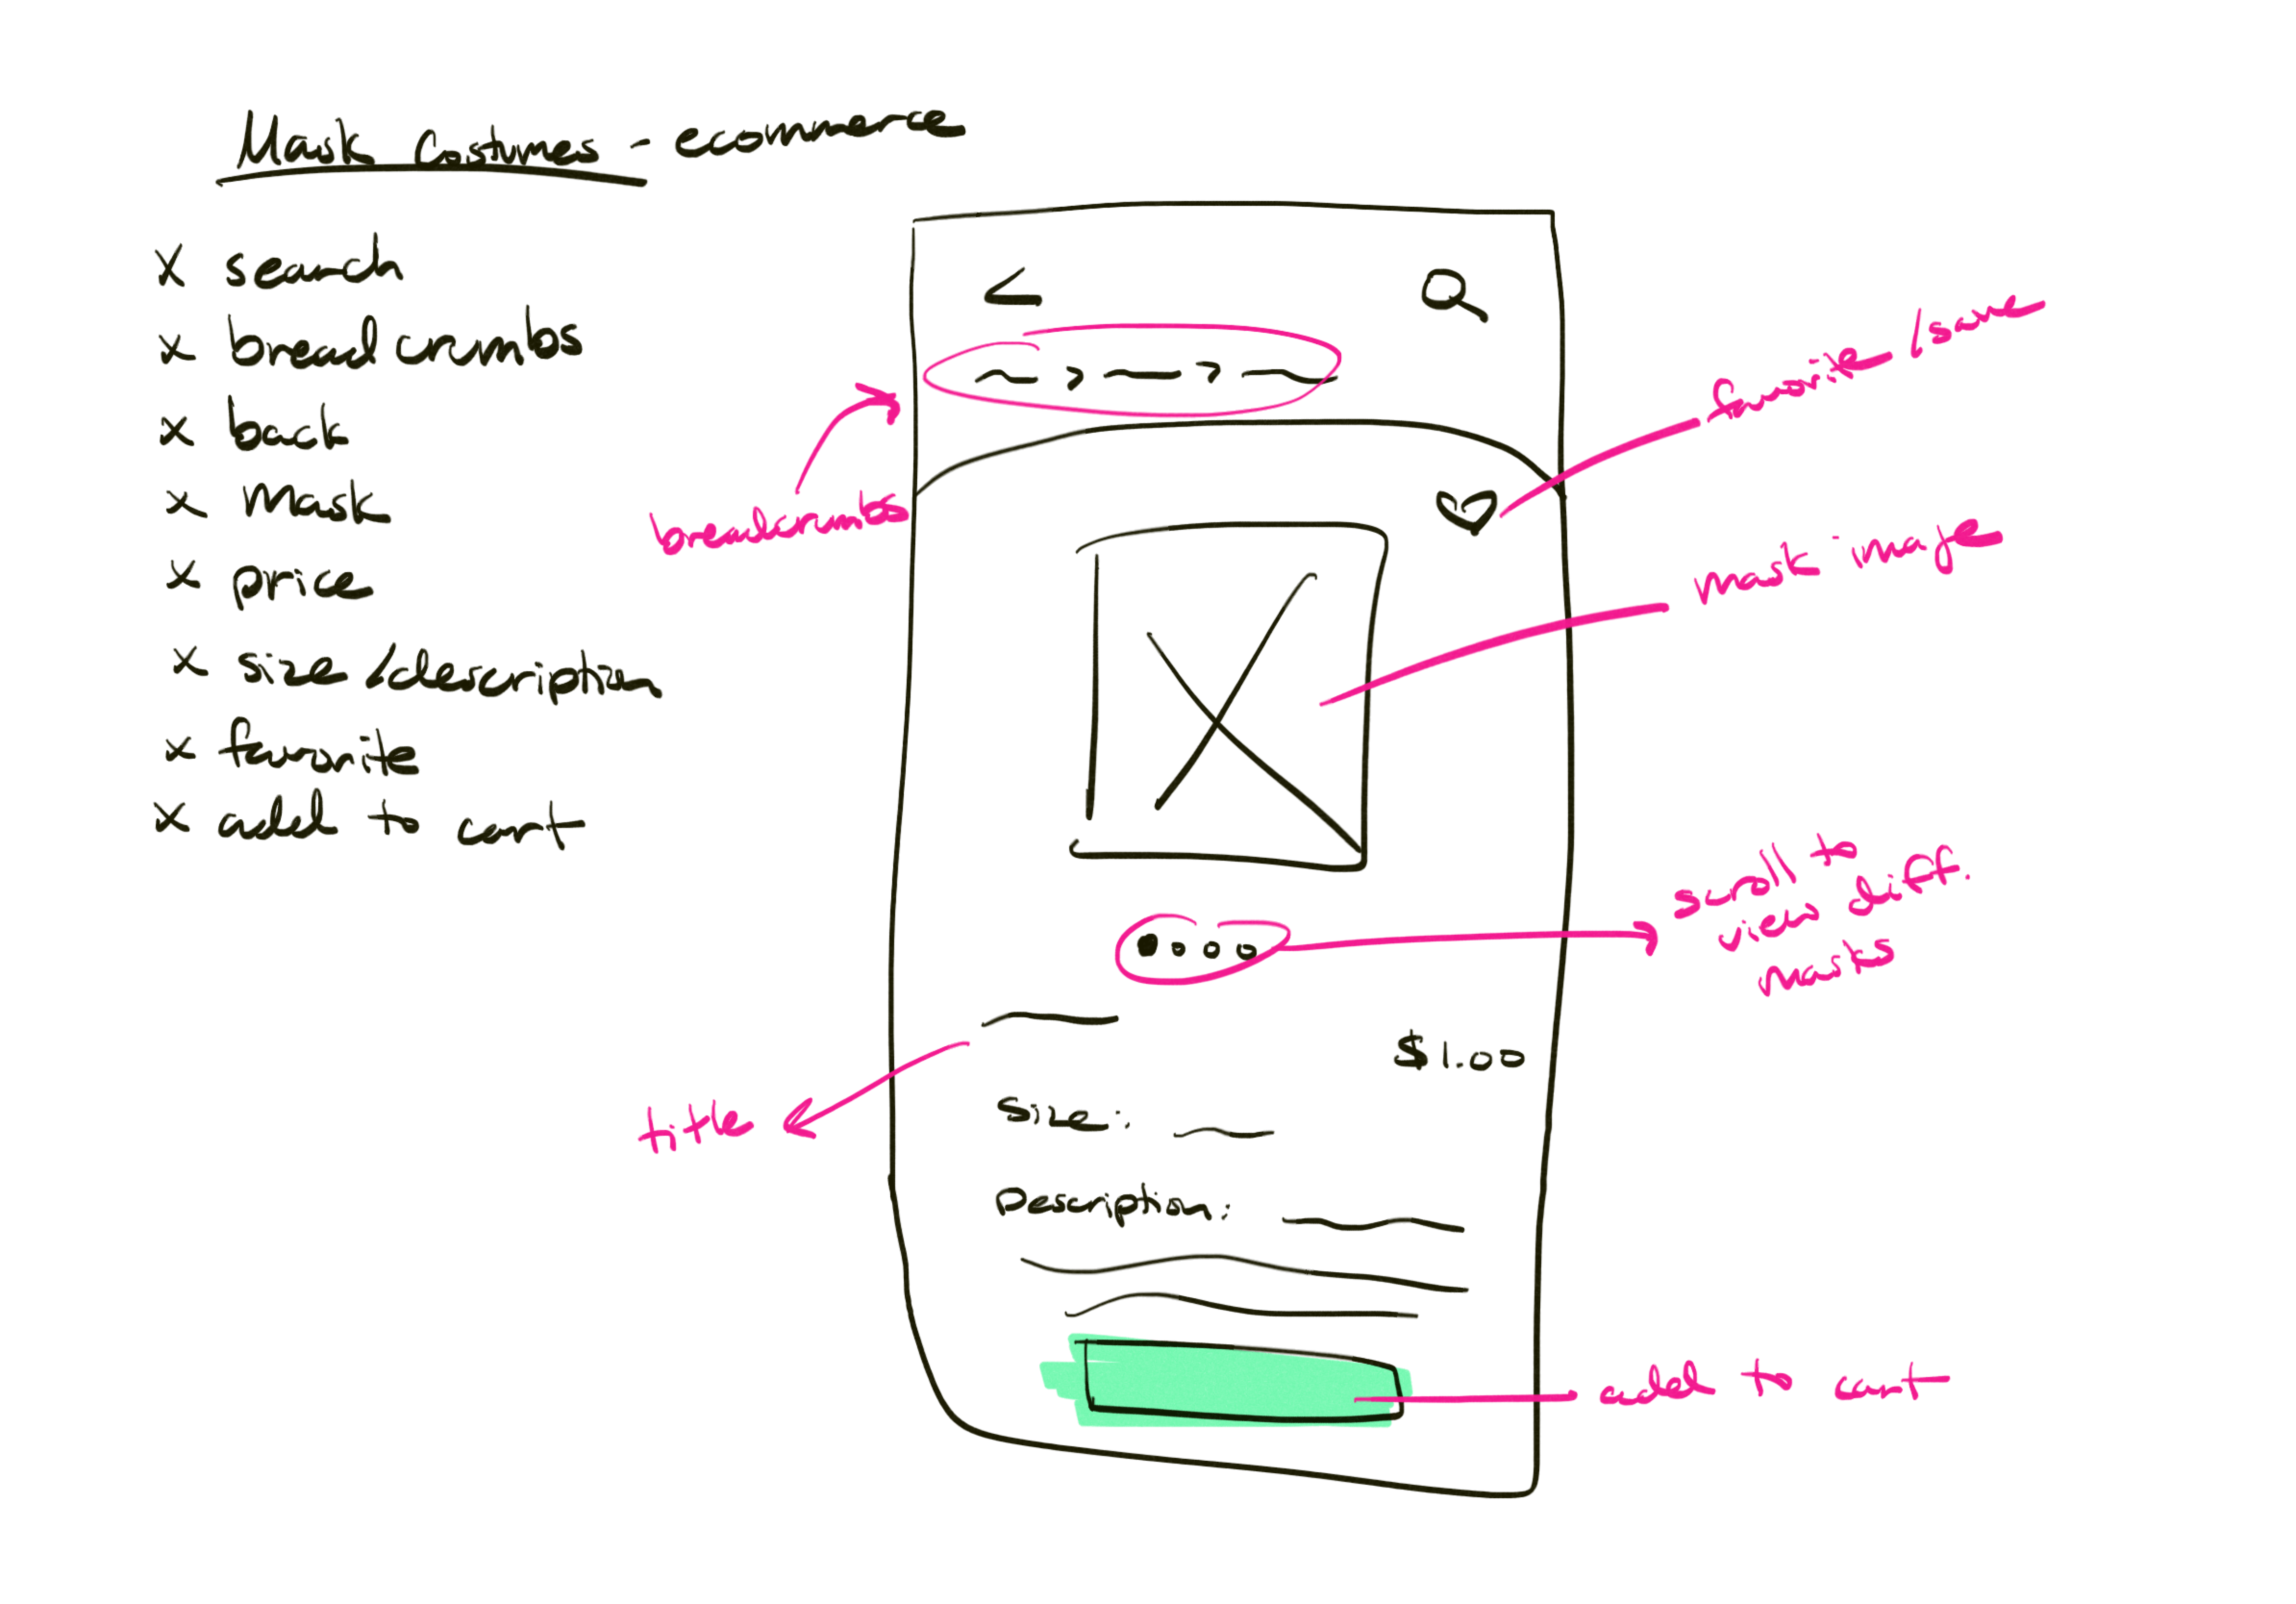 Mask Costumes - ecommerce
x search
x breadcrumbs
x back
x Mask
x price
x size/description
x favorite
x add to cart
breadcrumbs
favorite/save
mask image
scroll to
view diff.
masks
title
$1.00
Size:
Description:
add to cart